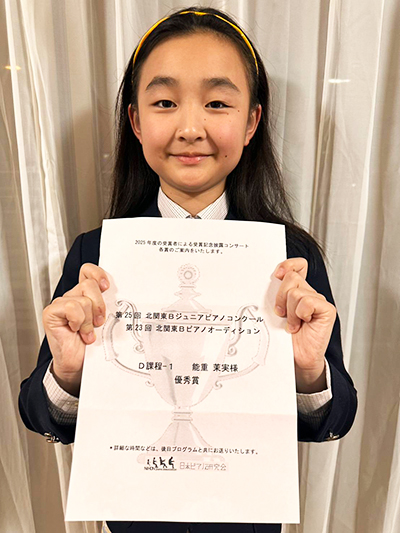 2025年度の受賞者による受賞記念披露コンサート
各賞のご案内をいたします。
第25回 北関東Bジュニアピアノコンクール
第23回 北関東Bピアノオーディション
D課程-1 能重 茉実様
優秀賞
*詳細な時間などは、後日プログラムと共にお送りいたします。